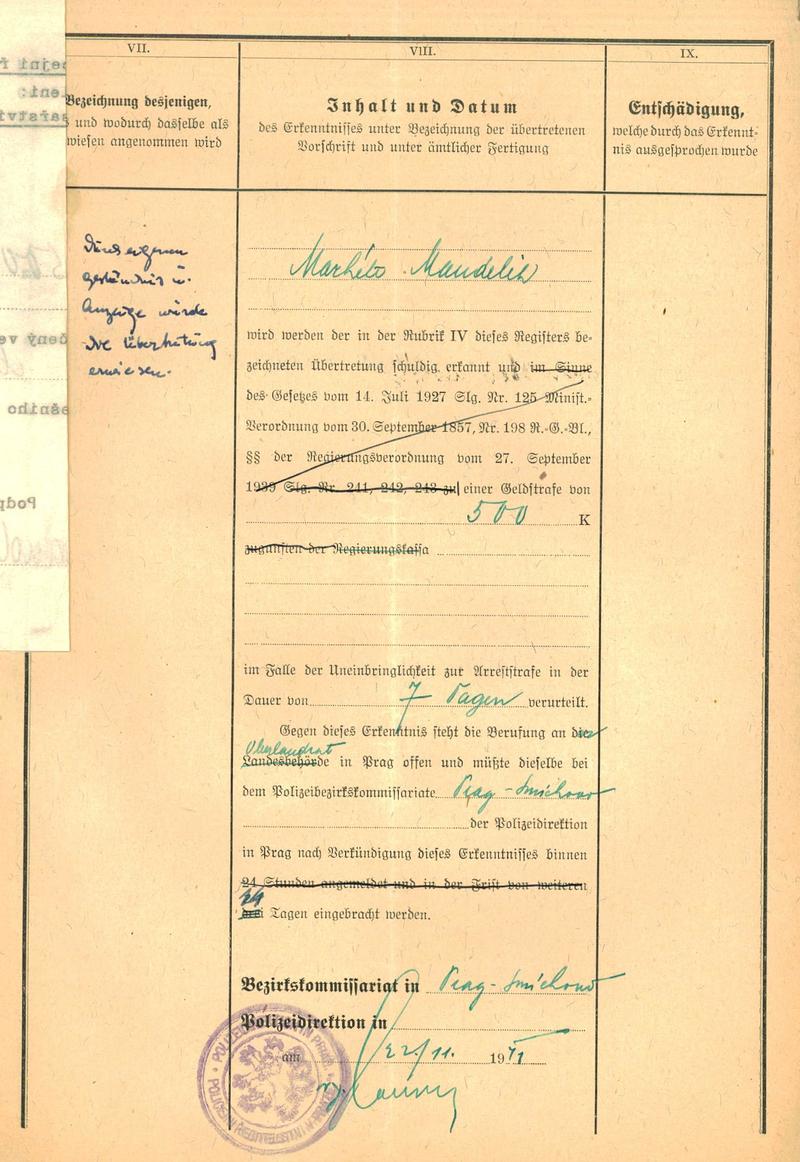 VII.
Bezeichnung desjenigen,
und wodurch dasselbe als
wiesen angenommen wird
VIII.
Inhalt und Datum
des Erkenntnisses unter Bezeichnung der übertretenen
Vorschrift und unter ämtlicher Fertigung
IX.
Entschädigung,
welche durch das Erkennt-
nis ausgesprochen wurde
Geständnis u.
Anzeige wurde
die Übertretung
erwiesen.
Markéta Mandelik
wird werden der in der Rubrik IV dieses Registers be-
zeichneten Übertretung schuldig erkannt und im Sinne
des Gesetzes vom 14. Juli 1927 Slg. Nr. 125 Minist.-
Verordnung vom 30. September 1857, Nr. 198 R.-G.-Bl.,
§§ der Regierungsverordnung vom 27. September
1939 Slg. Nr. 241, 242, 243 zu einer Geldstrafe von
500 K
zugunsten der Regierungskassa
im Falle der Uneinbringlichkeit zur Arreststrafe in der
Dauer von 7 Tagen verurteilt.
Gegen dieses Erkenntnis steht die Berufung an die
Oberlandrat
Landesbehörde in Prag offen und müßte dieselbe bei
dem Polizeibezirkskommissariate Prag - Smichow
der Polizeidirektion
in Prag nach Verkündigung dieses Erkenntnisses binnen
24 Stunden angemeldet und in der Frist von weiteren
drei Tagen eingebracht werden.
Bezirkskommissariat in Prag - Smichow
Polizeidirektion in
am 22/11. 1941